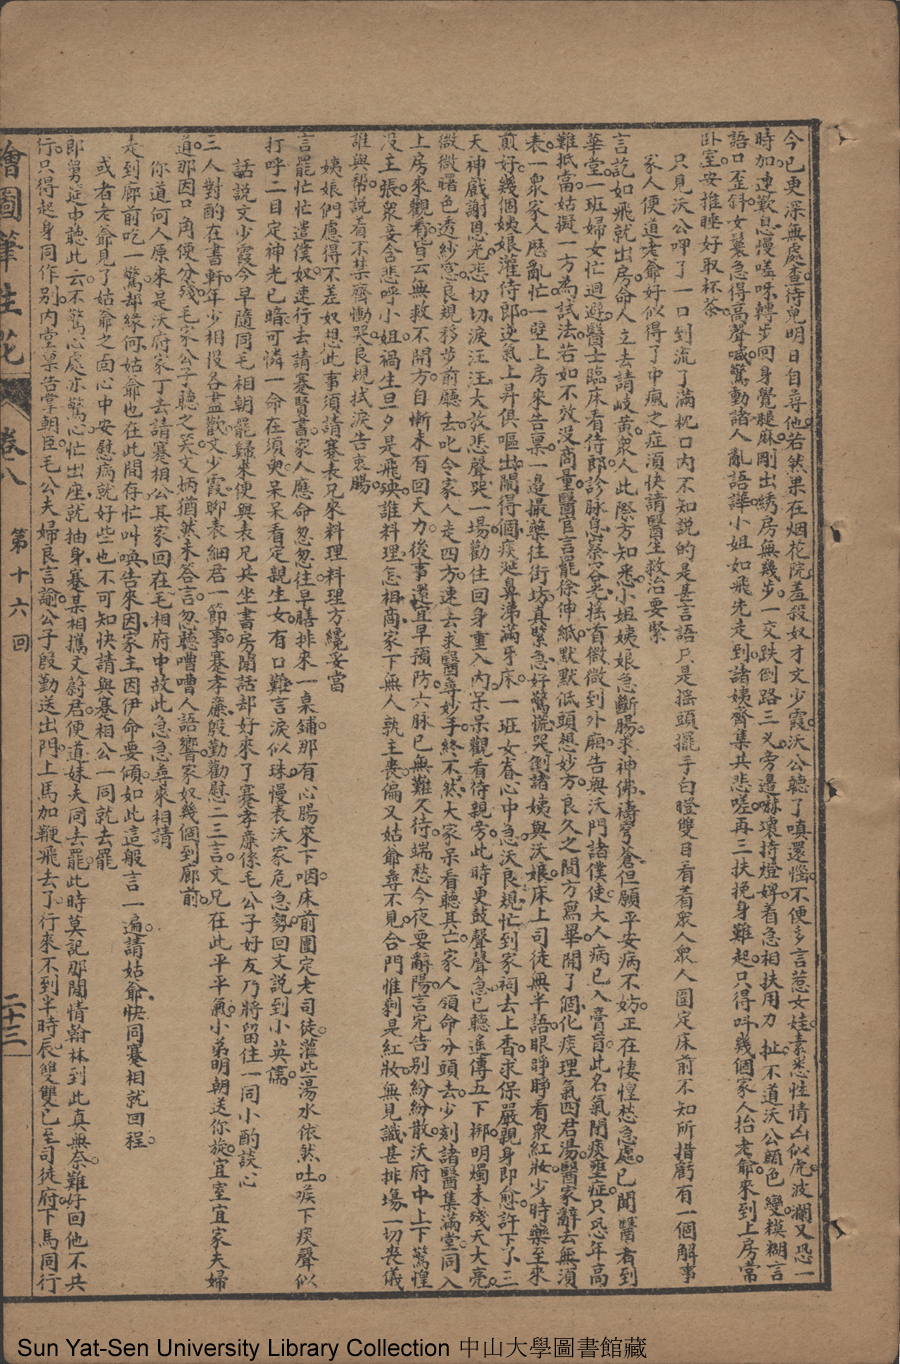 今已更深無處查待見明日自尋他若然果在烟花院羞殺奴才文少霞沃公聽了嗔還惱不便多言惹女娃素悉性情凶似虎波瀾又恐一
時加連歎息慢嗟呀轉步回身覺腿麻剛出綉房無幾步一交跌倒路三义旁邊嚇壞持燈婢着急相扶用力扯不道沃公顏色變糢糊言
語口歪斜女鬟急得高聲喊驚動諸人亂語譁小姐如飛先走到諸姨齊集共悲嗟再三扶挽身難起只得呌幾個家人抬老爺來到上房常
卧室安推睡好取杯茶
只見沃公呷了一口到流了滿枕口内不知説的是甚言語只是搖頭擺手白瞪雙目看着衆人衆人圓定床前不知所措虧有一個解事
家人便道老爺好似得了中瘋之症須快請醫生救治要緊
言訖如飛就出房命人立去請岐黃衆人此際方知悉小姐姨娘急斷腸求神佛禱穹蒼但願平安病不妨正在悽惶愁急處已聞醫者到
華堂一班婦女忙迴避醫士臨床看侍郎診脉息察容光搖首微微到外廂告與沃門諸僕使大人病已入膏肓此名氣閉痰壅症只恐年高
難抵當姑擬一方為試法若如不效没商量醫官言罷徐伸紙默默低頭想妙方良久之間方寫畢開了個化痰理氣四君湯醫家辭去無須
表一衆家人歷亂忙一壁上房來告稟一邊撮藥往街坊真緊急好驚慌哭倒諸姨與沃娘床上司徒無半語眼睜睜看衆紅妝少時藥至來
煎好幾個姨娘灌侍郎逆氣上昇俱嘔出鬧得個痰涎鼻涕滿牙床一班女眷心中急沃良規忙到家祠去上香求保嚴親身即愈許下了三
天神戲謝恩光悲切切淚汪汪大放悲聲哭一場勸住回身重入內呆呆觀看待親旁此時更鼓聲聲急已聽遥傳五下梆明燭未殘天大亮
微微曙色透紗窓良規移步前廳去叱令家人走四方速去求醫尋妙手終不然大家呆看聽其亡家人領命分頭去少刻諸醫集滿堂同入
上房來觀看皆云無救不開方自慚未有回天力後事還宜早預防六脉已無難久待端愁今夜要辭陽言完告別紛紛散沃府中上下驚惶
没主張衆妾含悲呼小姐禍生旦夕是飛殃誰料理怎相商家下無人孰主喪偏又姑爺尋不見合門惟剩是紅妝無見識甚排塲一切喪儀
誰與幫説着不禁齊慟哭良規拭淚告衷腸
姨娘們慮得不差奴想此事須請蹇表兄來料理料理方纔妥當
言罷忙忙遣僕奴速行去請蹇賢書家人應命忽忽往早膳排來一桌鋪那有心腸來下咽床前圍定老司徒灌些湯水依然吐喉下痰聲似
打呼二目定神光已暗可憐一命在須臾呆呆看定親生女有口難言淚似珠慢表沃家危急勢回文説到小英儒
話説文少霞今早隨同毛相朝罷歸來便與表兄共坐書房閒話却好來了蹇孝廉係毛公子好友乃將留住一同小酌談心
三人對酌在書軒年少相投各盡歡文少霞聊表細君一節事蹇孝廉殷勤勸慰二三言文兄在此平平氣小弟明朝送你旋宜室宜家夫婦
道那因口角便分殘毛家公子聽之笑文炳猶然未答言忽聽嘈嘈人語響家奴幾個到廊前
你道何人原來是沃府家丁去請蹇相公其家回在毛相府中故此急急尋來相請
走到廊前吃一驚却緣何姑爺也在此間存忙叫喚告來因家主因伊命要傾如此這般言一遍請姑爺快同蹇相就回程
或者老爺見了姑爺之面心中安慰病就好些也不可知快請與蹇相公一同就去罷
郎舅筵中聽此云不驚心處亦驚心忙出座就抽身蹇某相攜文蔚君便道妹夫同去罷此時莫記那閒情翰林到此真無奈難好回他不共
行只得起身同作別内堂稟告掌朝臣毛公夫婦良言諭公子殷勤送出門上馬加鞭飛去了行來不到半時辰雙雙已至司徒府下馬同行
繪圖筆生花 卷八 第十六回 二十三
Sun Yat-Sen University Library Collection 中山大學圖書館藏